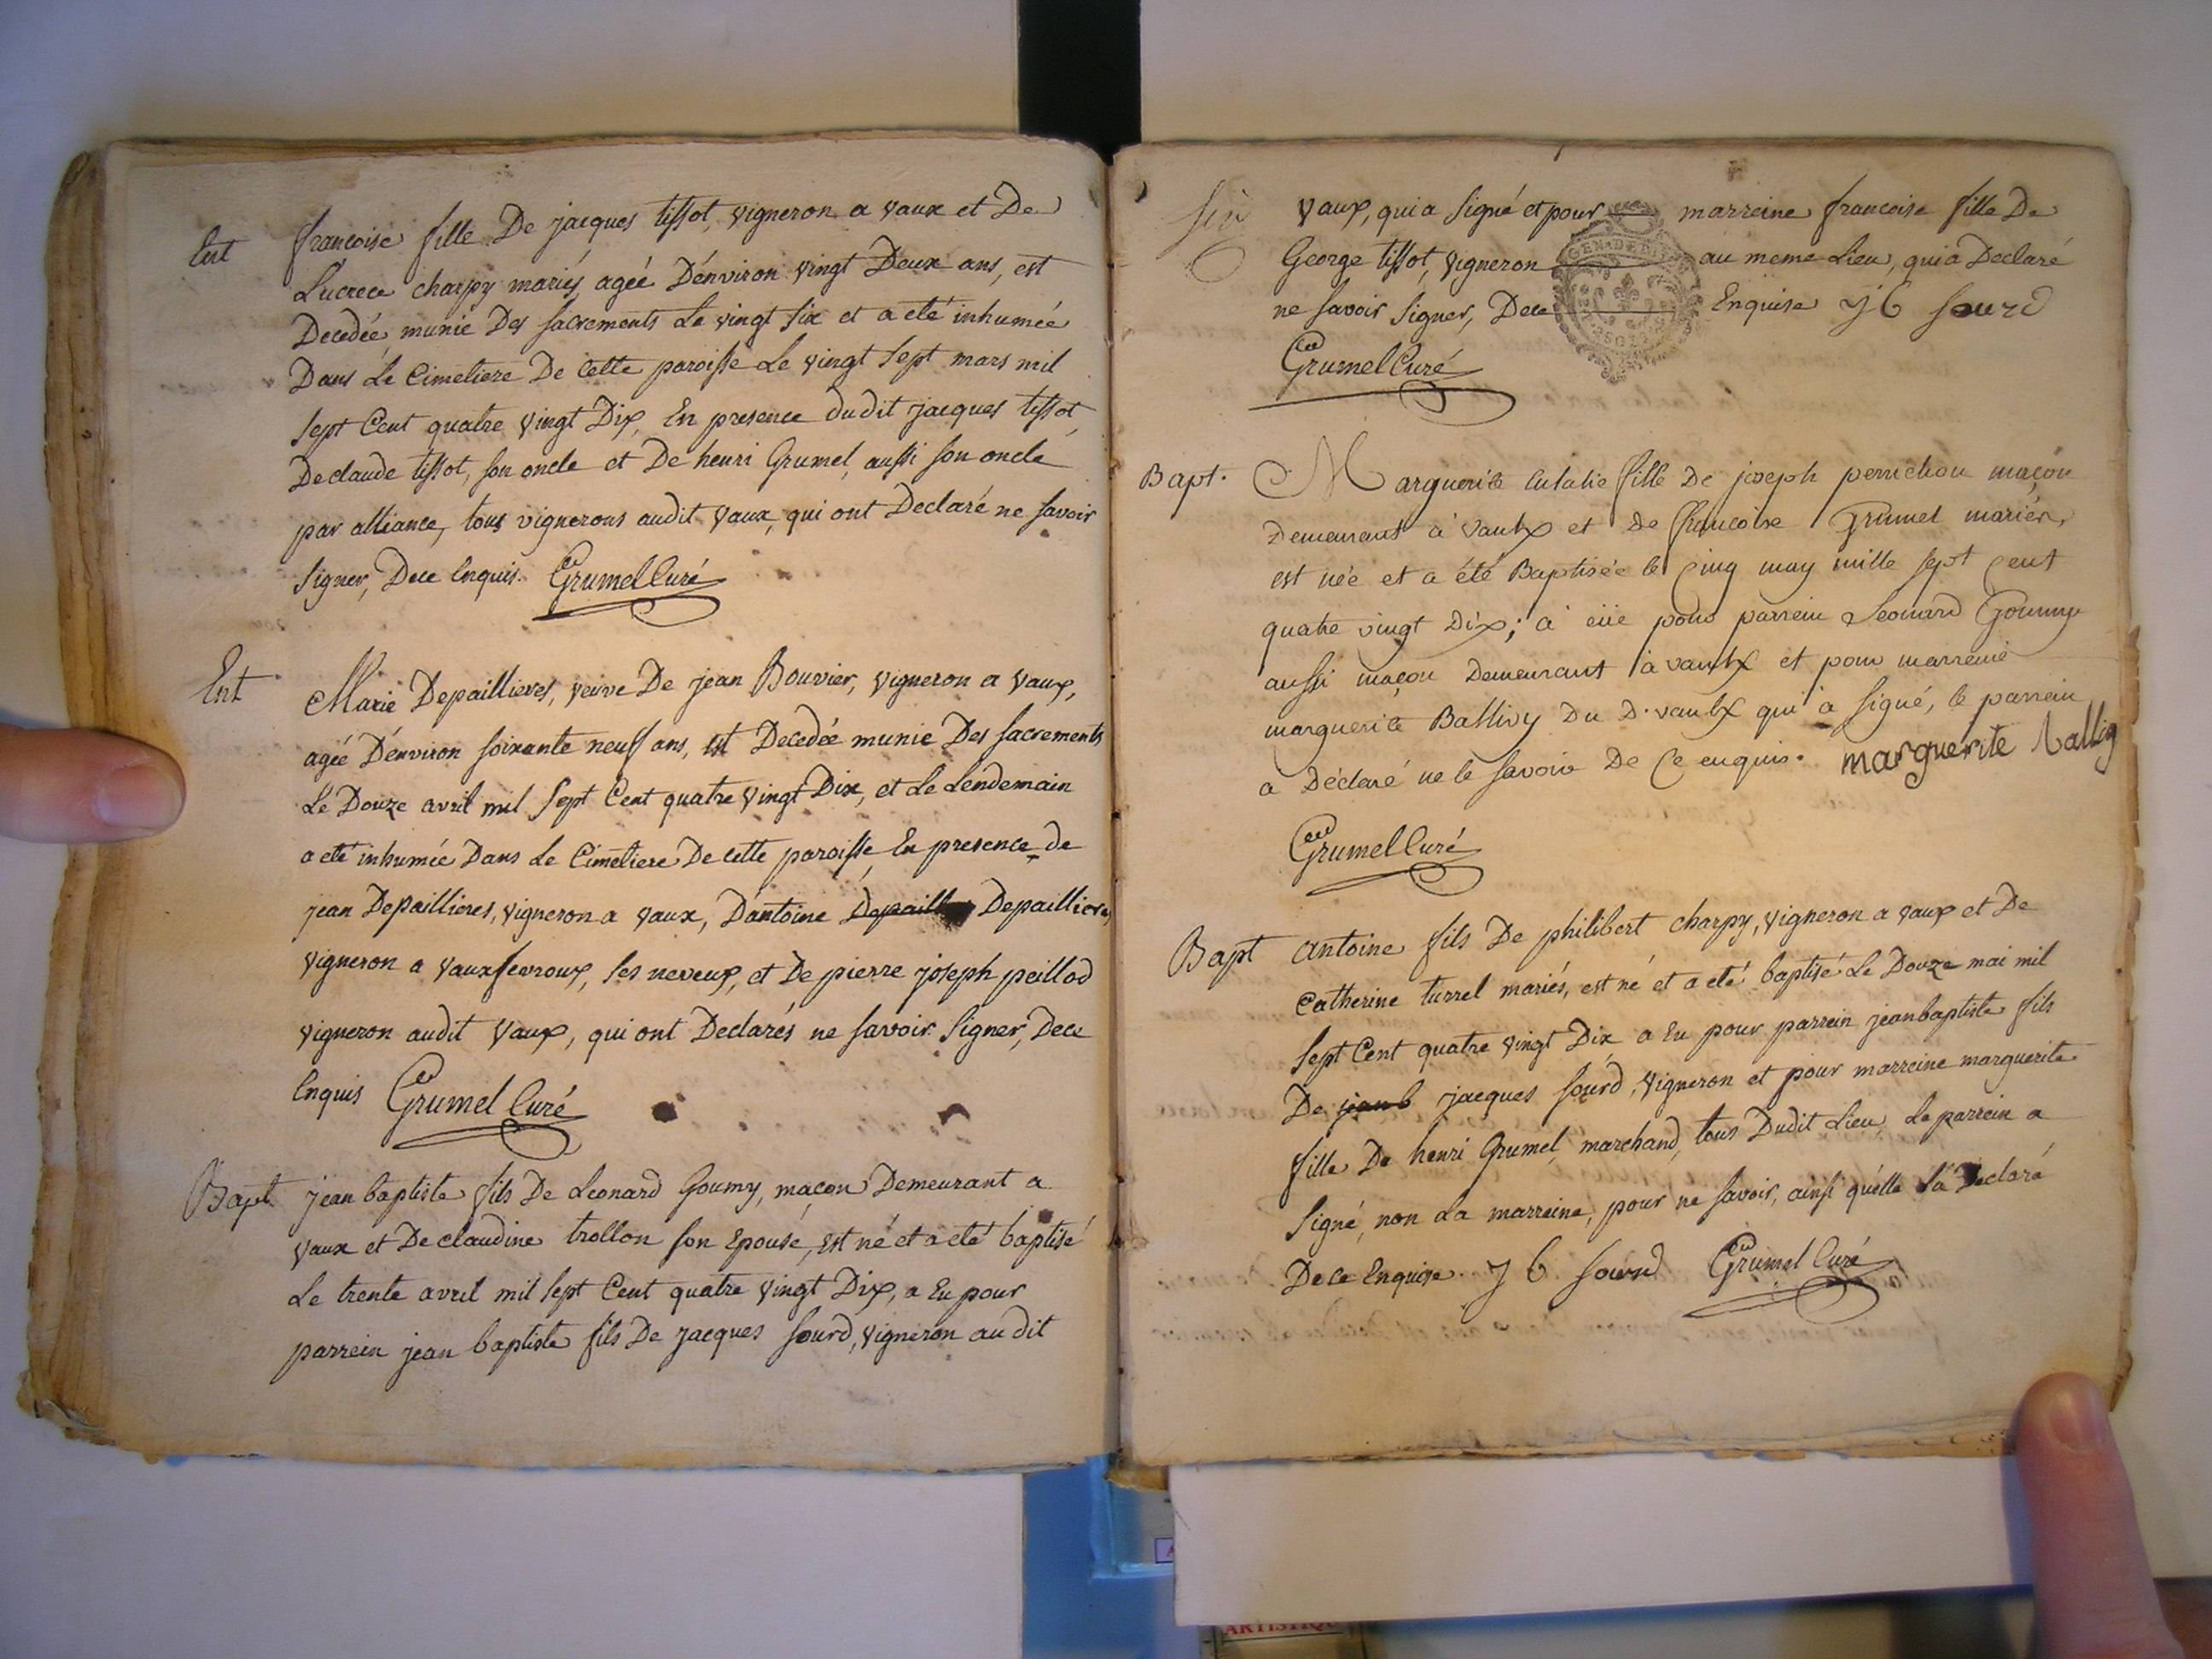 Ent
francoise fille De jacques tissot, vigneron a vaux et De
Lucrece charpy mariés, agée D'énviron vingt Deux ans, est
Decedée munie Des sacrements Le vingt six et a eté inhumée
Dans Le Cimetiere De cette paroisse Le vingt sept mars mil
sept Cent quatre vingt Dix, En presence dudit jacques tissot,
De claude tissot, son oncle et De henri Grumel, aussi son oncle
par alliance, tous vignerons audit vaux, qui ont Declaré ne savoir
signer, Dece Enquis. Grumel Curé
Ent
Marie Depaillieres, veuve De jean Bouvier, vigneron a vaux,
agée D'énviron soixante neuf ans, est Decedée munie Des sacrements
Le Douze avril mil sept Cent quatre vingt Dix, et Le Lendemain
a eté inhumée Dans Le Cimetiere De cette paroisse, En presence de
jean Depaillieres, vigneron a vaux, D'antoine Depaill Depaillieres,
vigneron a vauxfevroux, ses neveux, et De pierre joseph peillod
vigneron audit vaux, qui ont Declarés ne savoir signer, Dece
Enquis Grumel Curé
Bapt
jean baptiste fils De Leonard Goumy, maçon Demeurant a
vaux et De claudine trollon son Epouse, est né et a eté baptisé
Le trente avril mil sept Cent quatre vingt Dix, a Eu pour
parrein jean baptiste fils De jacques sourd, vigneron audit
vaux, qui a signé et pour marreine francoise fille De
George tissot, vigneron au meme Lieu, qui a Declaré
ne savoir signer, Dece Enquise J b sourd
Grumel Curé
GEN DE
Bapt.
Marguerite Eulalie fille De joseph perrichon maçon
Demeurant à vaulx et De françoise Grumel mariés,
est née et a été Baptisée le cinq may mille sept cent
quatre vingt Dix; a eüe pour parrein Leonard Goumy
aussi maçon Demeurant à vaulx et pour marreine
marguerite Ballivy Du D. vaulx qui a signé, le parrein
a Déclaré ne le savoir De Ce enquis. marguerite
Grumel Curé
Bapt
antoine fils De philibert charpy, vigneron a vaux et De
Catherine turrel mariés, est né et a eté baptisé Le Douze mai mil
sept Cent quatre vingt Dix a Eu pour parrein jean baptiste fils
De jean b jacques sourd, vigneron et pour marreine marguerite
fille De henri Grumel, marchand, tous Dudit Lieu, Le parrein a
signé, non La marreine, pour ne savoir, ainsi qu'elle L'a Declaré
Dece Enquise. J b sourd Grumel Curé
ARTISTIQU